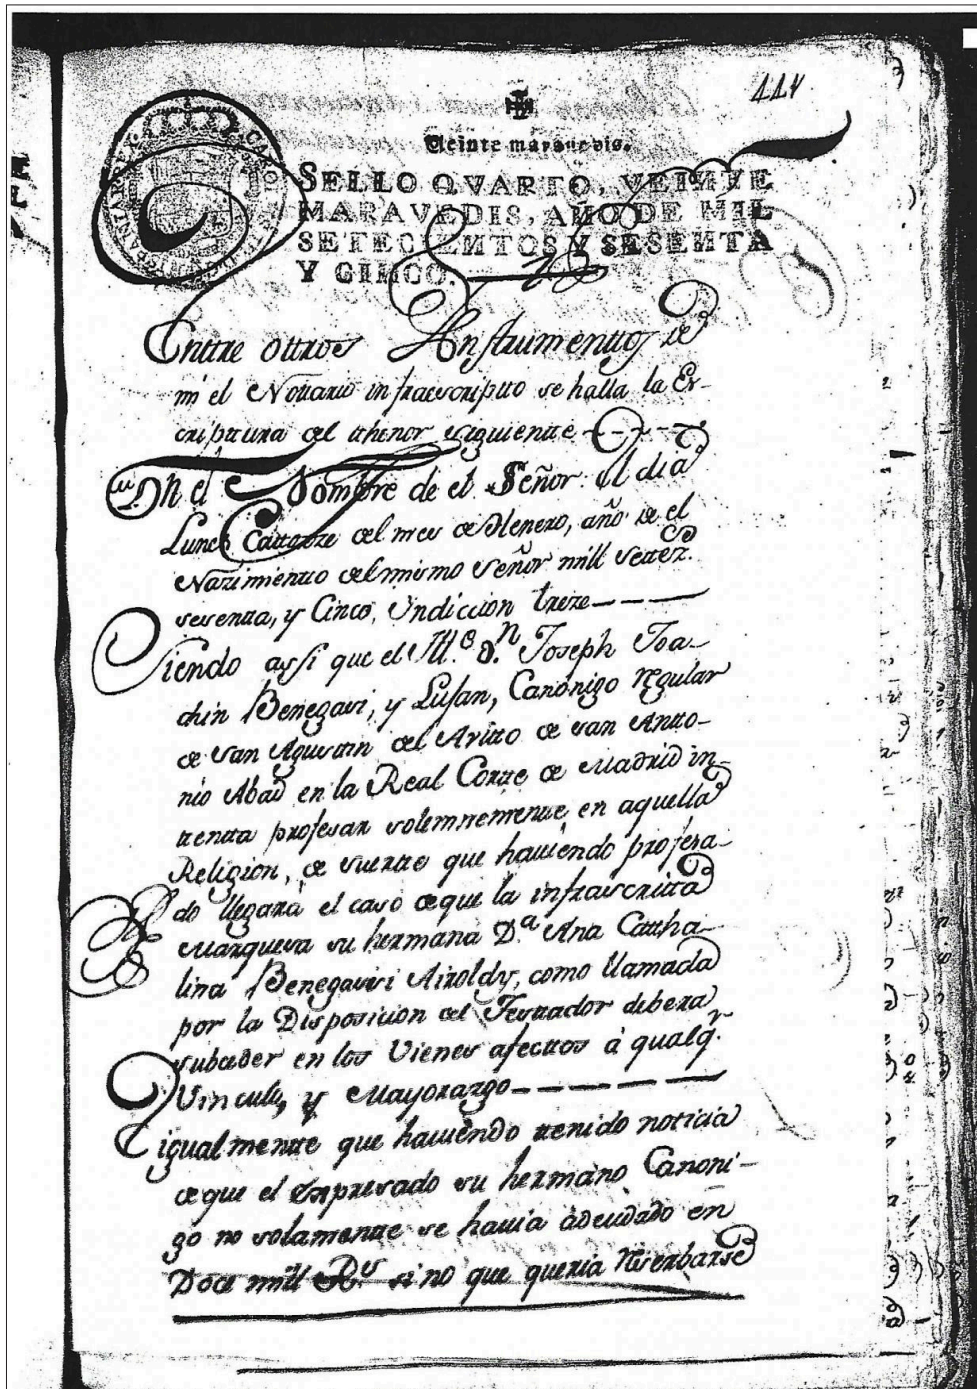 114
Veinte maravedis.
SELLO QVARTO, VEINTE
MARAVEDIS, AÑO DE MIL
SETECIENTOS Y SESENTA
Y CINCO.
Entre ottros Ynstrumenttos de
mi el Nottario infraescriptto se halla la Es-
criptura del thenor siguientte
En el Nombre de el Señor. el dia
Lunes Cattorze del mes de Henero, año de el
Nazimientto del mismo Señor mill settez.
sesenta, y Cinco, Yndiccion treze
Siendo assi que el Ill.e d.n Joseph Joa-
chin Benegasi, y Lusan, Canonigo regular
de san Agustin del Avitto de san Antto-
nio Abad en la Real Cortte de Madrid in-
tentta profesar solemnementte en aquella
Religion, de suertte que haviendo profesa-
do llegará el caso de que la infrascritta
Marquesa su hermana D.a Ana Cattha-
lina Benegassi Airoldy, como llamada
por la Disposicion del Testador debera
subceder en los Vienes afecttos à qualq.r
Vinculo, y Mayorazgo
E igualmentte que haviendo tenido noticia
de que el expresado su hermano Canoni-
go no solamentte se havia àdeudado en
Doce mill R.s si no que queria reserbarse